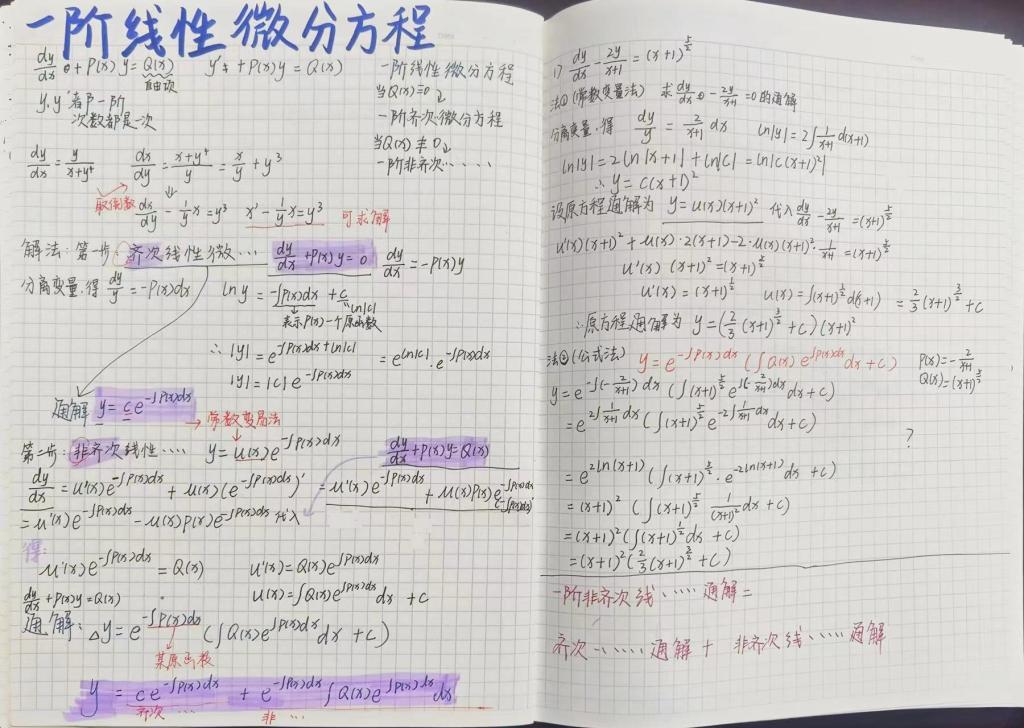 一阶线性微分方程
dy/dx + P(x)y = Q(x)  y' + P(x)y = Q(x)  一阶线性微分方程
自由项  当Q(x)≡0
y, y' 者阝一阶  一阶齐次微分方程
次数都是一次  当Q(x)≢0
一阶非齐次·····
dy/dx = y/(x+y⁴)  dx/dy = (x+y⁴)/y = x/y + y³
取倒数
dx/dy - (1/y)x = y³  x' - (1/y)x = y³  可求解
解法: 第一步: 齐次线性微··· dy/dx + P(x)y = 0  dy/dx = -P(x)y
分离变量,得 dy/y = -P(x)dx  ln y = -∫P(x)dx + C
ln|C|
表示P(x)一个原函数
∴ |y| = e^(-∫P(x)dx+ln|C|) = e^(ln|C|)·e^(-∫P(x)dx)
|y| = |C|e^(-∫P(x)dx)
通解 y = ce^(-∫P(x)dx)
→常数变易法
第二步: 非齐次线性····  y = u(x)e^(-∫P(x)dx)  dy/dx + P(x)y = Q(x)
dy/dx = u'(x)e^(-∫P(x)dx) + u(x)(e^(-∫P(x)dx))' = u'(x)e^(-∫P(x)dx) + u(x)P(x)e^(-∫P(x)dx)
= u'(x)e^(-∫P(x)dx) - u(x)P(x)e^(-∫P(x)dx) 代入
得:
u'(x)e^(-∫P(x)dx) = Q(x)  u'(x) = Q(x)e^(∫P(x)dx)
dy/dx + P(x)y = Q(x)  u(x) = ∫Q(x)e^(∫P(x)dx)dx + C
通解: △y = e^(-∫P(x)dx)(∫Q(x)e^(∫P(x)dx)dx + C)
某原函数
y = ce^(-∫P(x)dx) + e^(-∫P(x)dx)∫Q(x)e^(∫P(x)dx)dx
齐次···  非···
1) dy/dx - 2y/(x+1) = (x+1)^(5/2)
法①(常数变量法) 求dy/dx - 2y/(x+1) = 0的通解
分离变量,得 dy/y = 2/(x+1) dx  ln|y| = 2∫1/(x+1) d(x+1)
ln|y| = 2ln|x+1| + ln|C| = ln|C(x+1)²|
∴ y = C(x+1)²
设原方程通解为 y = u(x)(x+1)² 代入 dy/dx - 2y/(x+1) = (x+1)^(5/2)
u'(x)(x+1)² + u(x)·2(x+1) - 2·u(x)(x+1)²·1/(x+1) = (x+1)^(5/2)
u'(x)(x+1)² = (x+1)^(5/2)
u'(x) = (x+1)^(1/2)  u(x) = ∫(x+1)^(1/2)d(x+1) = 2/3(x+1)^(3/2) + C
∴原方程通解为 y = (2/3(x+1)^(3/2) + C)(x+1)²
法②(公式法) y = e^(-∫P(x)dx)(∫Q(x)e^(∫P(x)dx)dx + C)  P(x) = -2/(x+1)
Q(x) = (x+1)^(5/2)
y = e^(-∫(-2/(x+1))dx)(∫(x+1)^(5/2)e^(∫(-2/(x+1))dx)dx + C)
= e^(2∫1/(x+1)dx)(∫(x+1)^(5/2)e^(-2∫1/(x+1)dx)dx + C)
?
= e^(2ln(x+1))(∫(x+1)^(5/2)·e^(-2ln(x+1))dx + C)
= (x+1)²(∫(x+1)^(5/2) 1/(x+1)² dx + C)
= (x+1)²(∫(x+1)^(1/2)dx + C)
= (x+1)²(2/3(x+1)^(3/2) + C)
一阶非齐次线·····通解 =
齐次·······通解 + 非齐次线·····通解